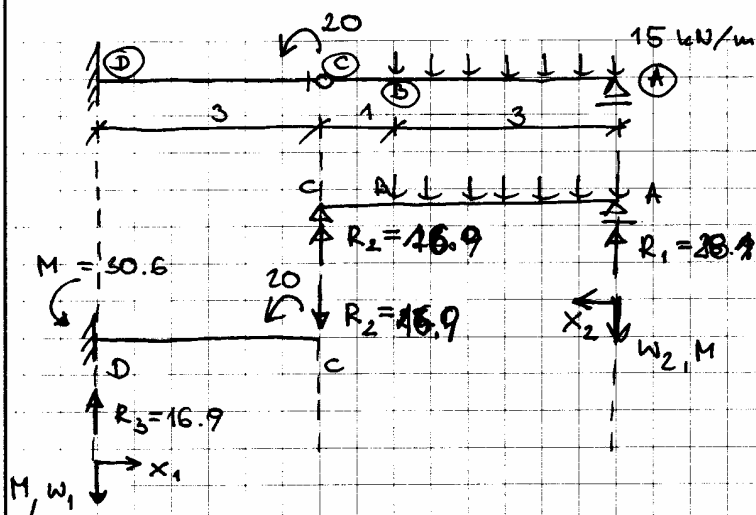 20
15 kN/m
D C A
B
3 1 3
C B A
R₂=16.9 R₁=28.1
M = 30.6
20
R₂=16.9
X₂ W₂, M
D C
R₃=16.9
X₁
M, W₁